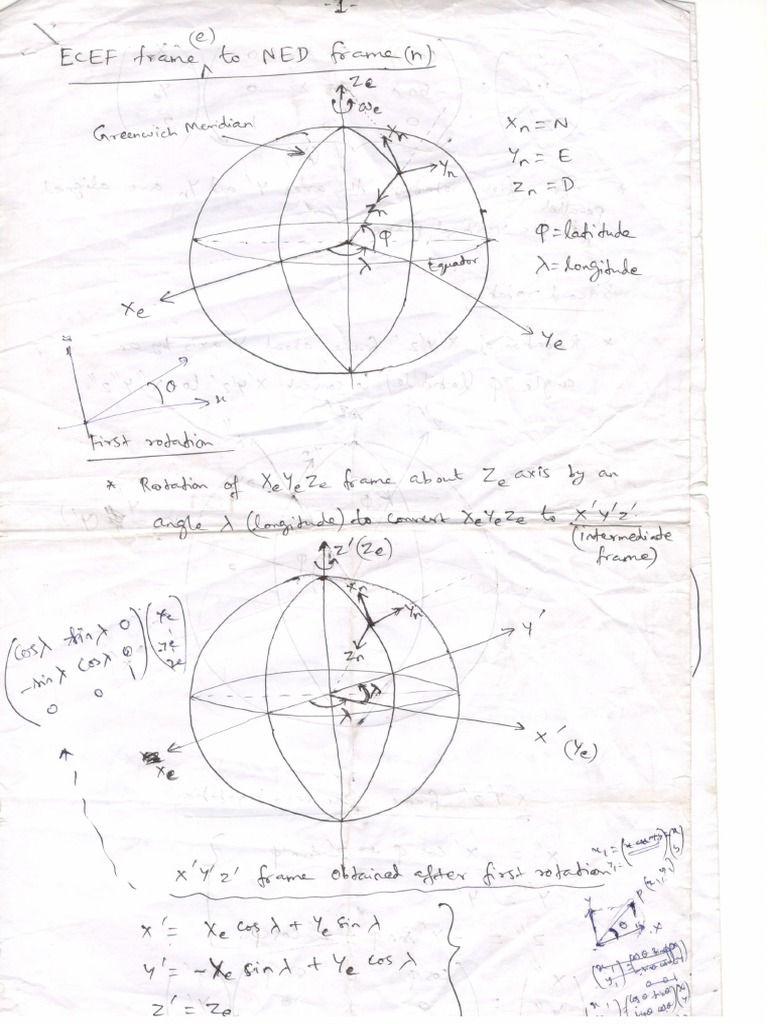 -1-
ECEF frame (e) to NED frame (n)
Ze
ωe
Greenwich Meridian
Xn
Yn
Zn
Xn = N
Yn = E
Zn = D
φ
λ
φ = latitude
λ = longitude
Equator
Xe
Ye
θ
x
First rotation
* Rotation of XeYeZe frame about Ze axis by an
angle λ (longitude) to convert XeYeZe to X'Y'Z'
(intermediate
frame)
Z'(Ze)
Xn
Yn
Zn
Y'
λ
λ
X' (Ye)
Xe
cosλ sinλ 0
-sinλ cosλ 0
0 0 1
X'Y'Z' frame obtained after first rotation
X' = Xe cosλ + Ye sinλ
Y' = -Xe sinλ + Ye cosλ
Z' = Ze
Y
θ
X